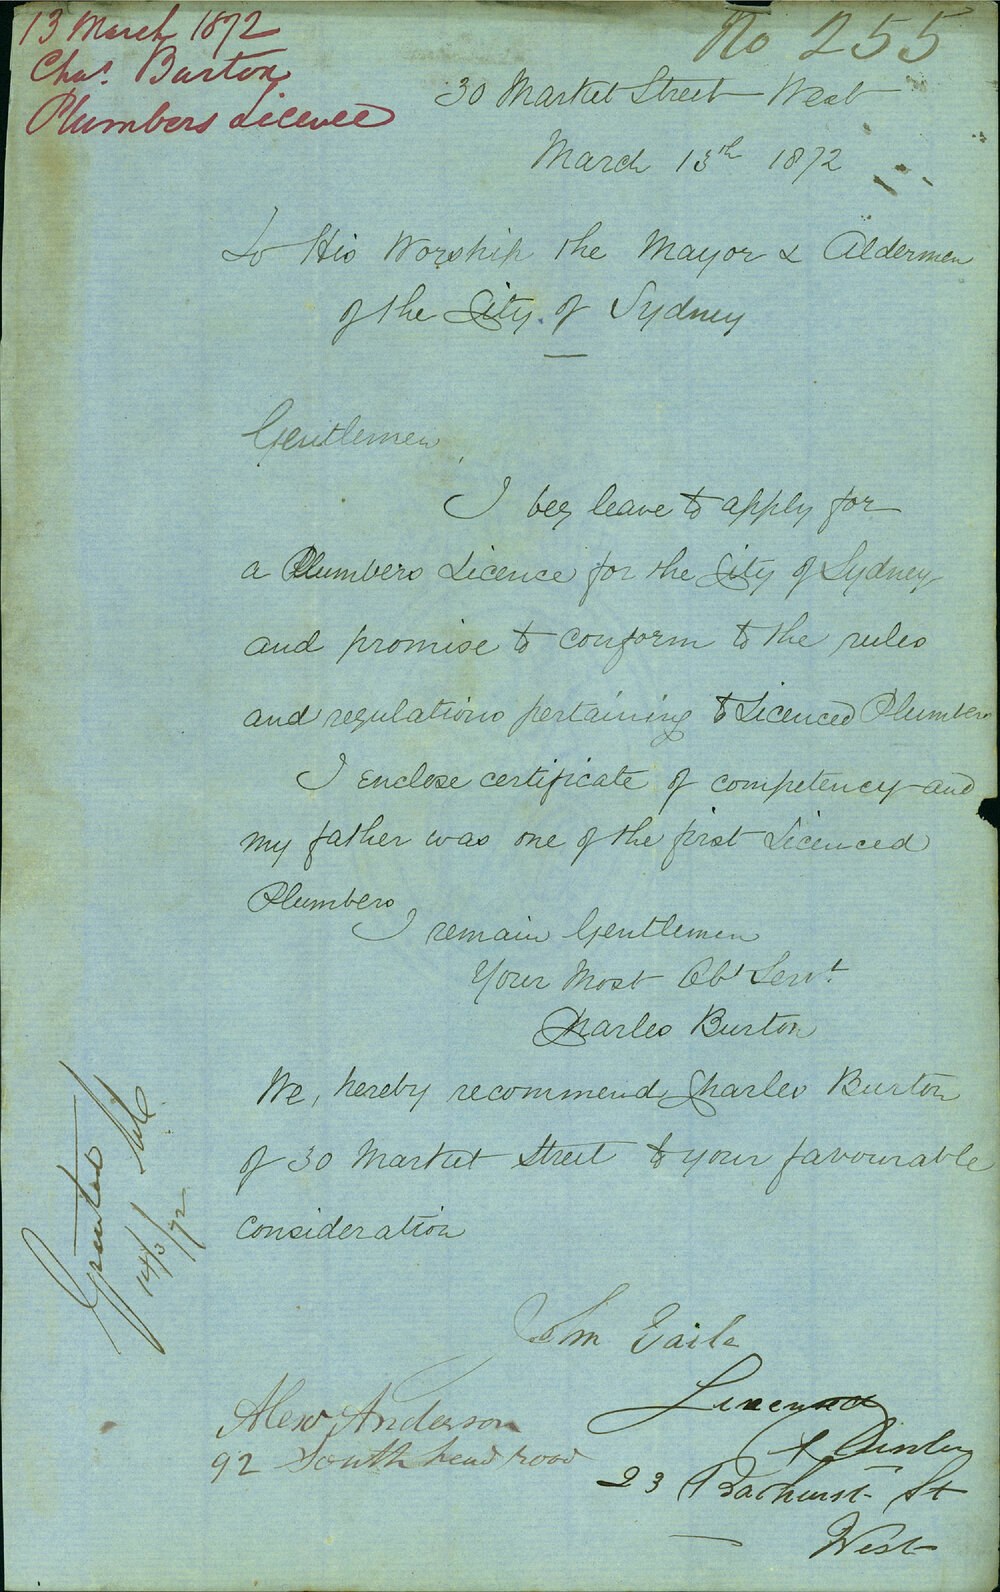 13 March 1872
Chas. Burton
Plumbers Licence
No 255
30 Market Street West
March 13th 1872
To His Worship the Mayor & Aldermen
of the City of Sydney
Gentlemen
I beg leave to apply for
a Plumbers Licence for the City of Sydney
and promise to conform to the rules
and regulations pertaining to Licenced Plumbers
I enclose certificate of competency and
my father was one of the first Licenced
Plumbers
I remain Gentlemen
Your Most Obt Servt
Charles Burton
We, hereby recommend Charles Burton
of 30 Market Street to your favourable
consideration
Granted
14/3/72
Alexr Anderson
92 South head road
Licensed
23 Bathurst St
West